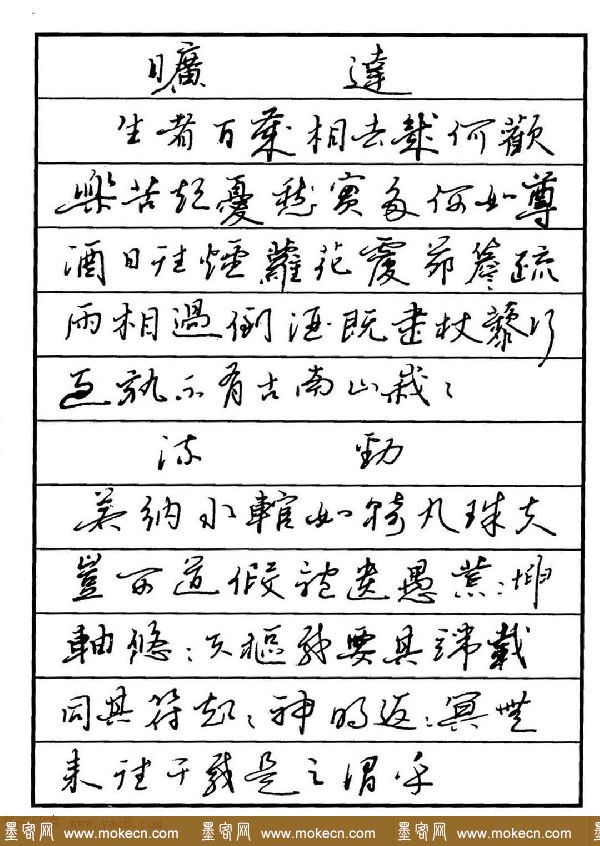 曠達
生者百歲相去幾何歡
樂苦短憂愁實多何如尊
酒日往煙蘿花覆茆簷疏
雨相過倒酒既盡杖藜行
歌孰不有古南山峨〻
流動
若納水輨如轉丸珠夫
豈可道假體遺愚荒〻坤
軸悠〻天樞載要其端載
同其符超〻神明返〻冥無
來往千載是之謂乎
墨客网 www.mokecn.com 墨客网 www.mokecn.com 墨客网 www.mokecn.com